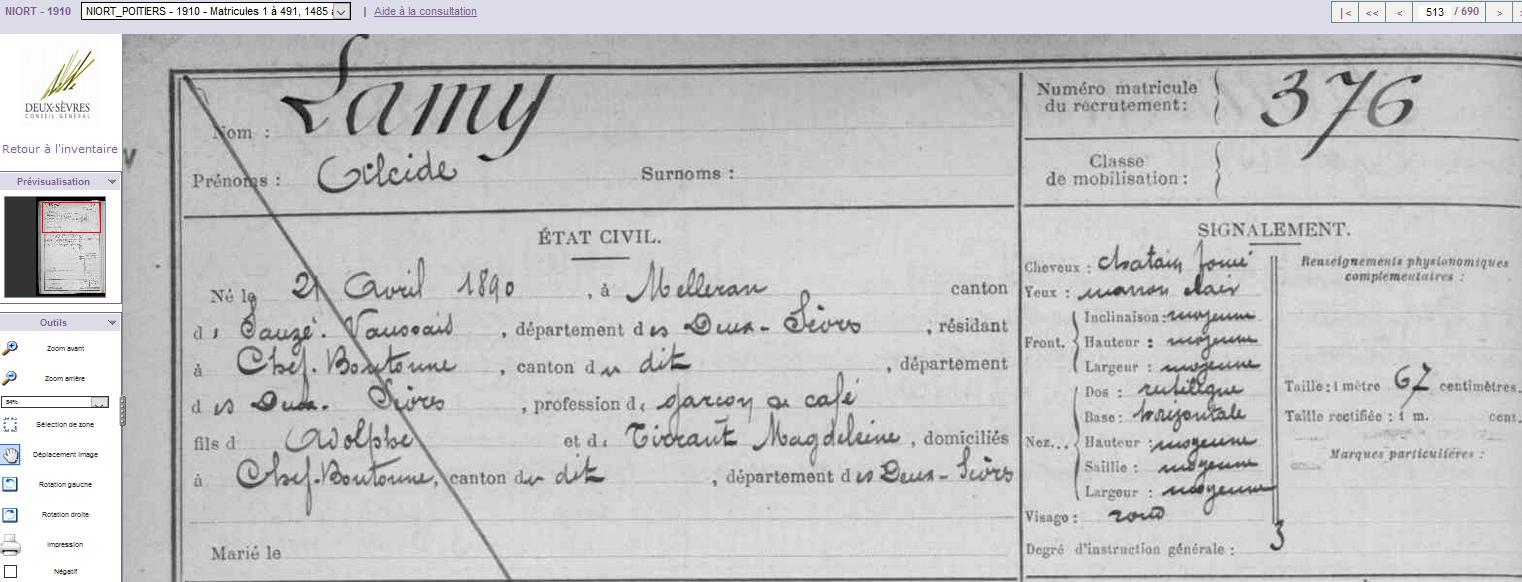 NIORT - 1910 NIORT_POITIERS - 1910 - Matricules 1 à 491, 1485 | Aide à la consultation |< << < 513 / 690 >
DEUX-SÈVRES
CONSEIL GÉNÉRAL
Retour à l'inventaire
Prévisualisation
Outils
Zoom avant
Zoom arrière
84%
Sélection de zone
Déplacement image
Rotation gauche
Rotation droite
Impression
Négatif
Nom : Lamy
Prénoms : Alcide Surnoms :
Numéro matricule
du recrutement: 376
Classe
de mobilisation :
ÉTAT CIVIL.
Né le 21 Avril 1890 , à Melleran canton
de Sauzé-Vaussais , département des Deux-Sèvres , résidant
à Chef-Boutonne , canton du dit , département
des Deux-Sèvres , profession de garçon de café
fils d Adolphe et de Magdeleine , domiciliés
à Chef-Boutonne, canton du dit , département des Deux-Sèvres
Marié le
SIGNALEMENT.
Cheveux : chatain foncé
Yeux : marron clair
Front. Inclinaison : moyenne
Hauteur : moyenne
Largeur : moyenne
Nez... Dos : rectiligne
Base : horizontale
Hauteur : moyenne
Saillie : moyenne
Largeur : moyenne
Visage : rond
Degré d'instruction générale : 3
Renseignements physionomiques
complémentaires :
Taille : 1 mètre 67 centimètres.
Taille rectifiée : 1 m. cent.
Marques particulières :